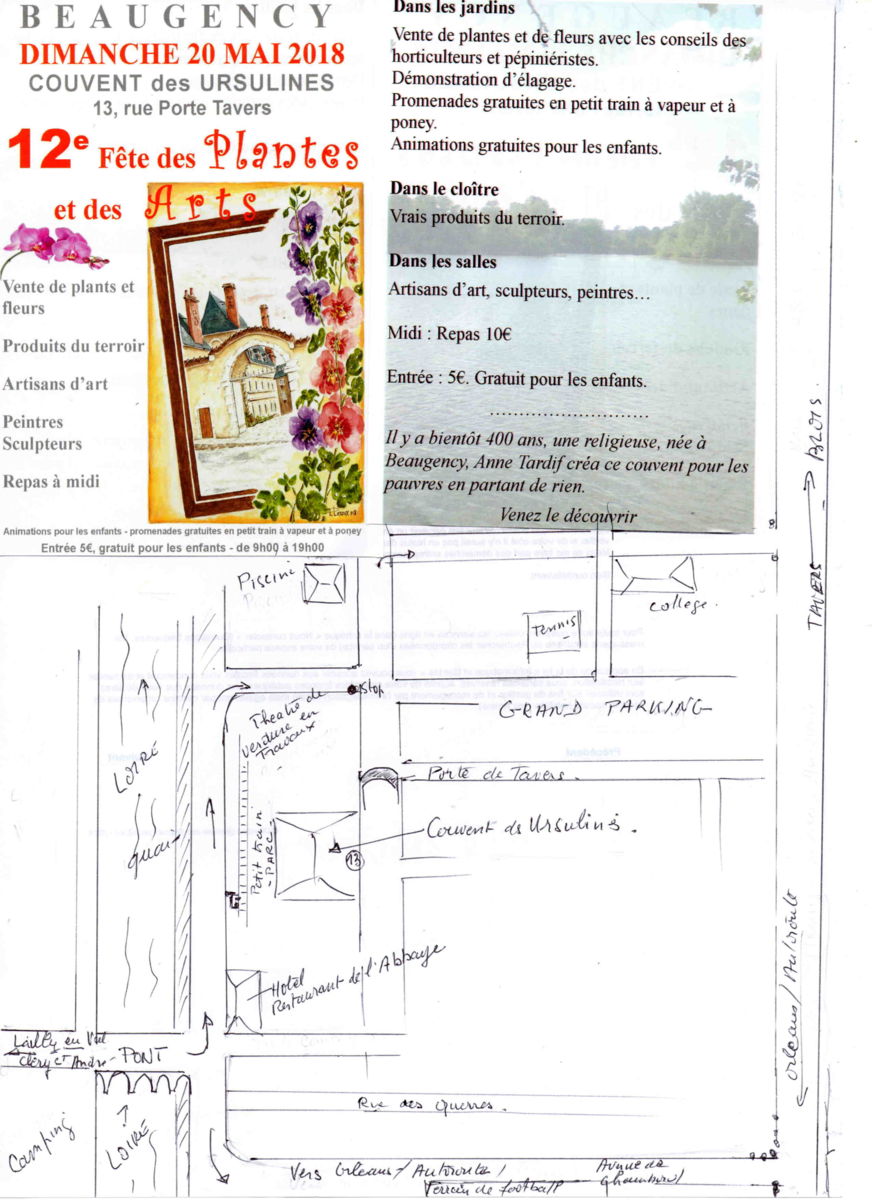 BEAUGENCY
DIMANCHE 20 MAI 2018
COUVENT des URSULINES
13, rue Porte Tavers
12e Fête des Plantes
et des Arts
Vente de plants et
fleurs
Produits du terroir
Artisans d'art
Peintres
Sculpteurs
Repas à midi
Animations pour les enfants - promenades gratuites en petit train à vapeur et à poney
Entrée 5€, gratuit pour les enfants - de 9h00 à 19h00
Dans les jardins
Vente de plantes et de fleurs avec les conseils des
horticulteurs et pépiniéristes.
Démonstration d'élagage.
Promenades gratuites en petit train à vapeur et à
poney.
Animations gratuites pour les enfants.
Dans le cloître
Vrais produits du terroir.
Dans les salles
Artisans d'art, sculpteurs, peintres…
Midi : Repas 10€
Entrée : 5€. Gratuit pour les enfants.
............................
Il y a bientôt 400 ans, une religieuse, née à
Beaugency, Anne Tardif créa ce couvent pour les
pauvres en partant de rien.
Venez le découvrir
TAVERS → BLOIS.
Piscine
College.
Tennis
Stop
GRAND PARKING
Theatre de
verdure en
Travaux
LOIRE
Porte de Tavers.
Couvent ds Ursulines.
Petit train
- PARC
13
quai
Hotel
Restaurant de l'Abbaye
Orleans/Autoroute
Lailly en Val
Clery St André
PONT
Camping
LOIRE
Rue des Querres.
Vers Orleans/Autoroute/
Terrain de football
Avenue de
Chambord